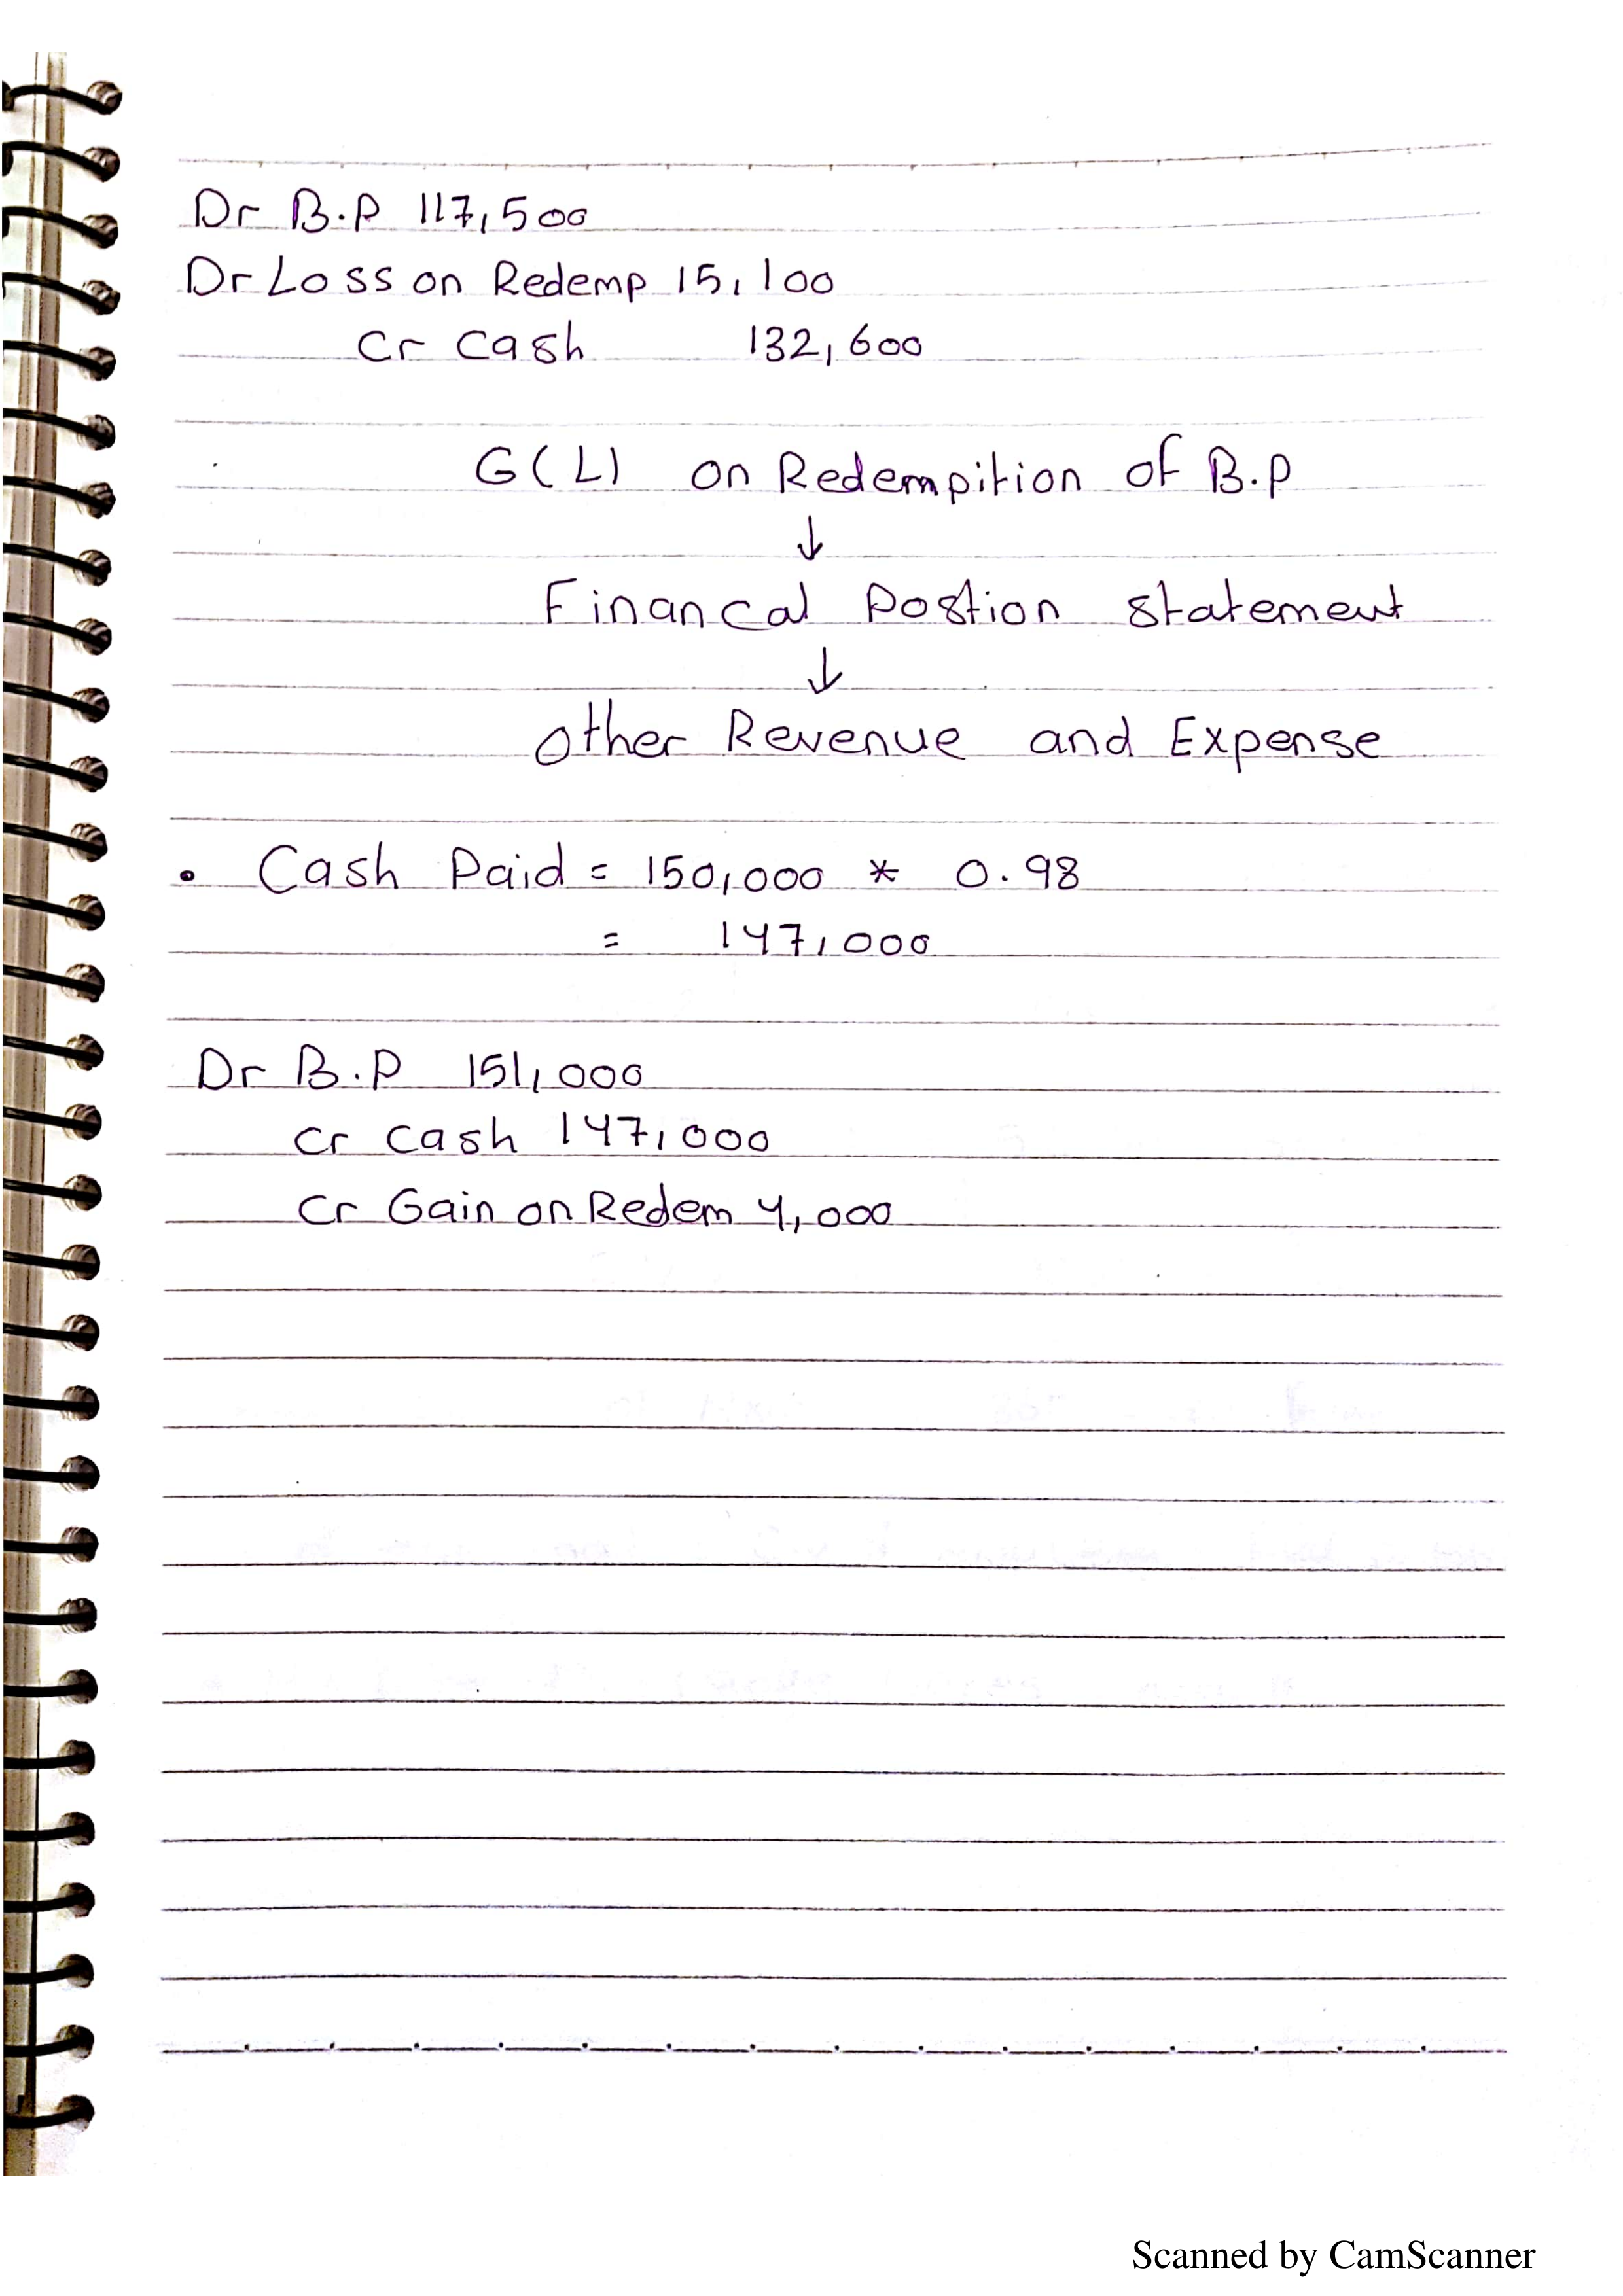 Dr B.P 117,500
Dr Loss on Redemp 15,100
Cr Cash 132,600
G(L) on Redempition of B.P
↓
Financal Postion Statement
↓
Other Revenue and Expense
• Cash Paid = 150,000 * 0.98
= 147,000
Dr B.P 151,000
Cr Cash 147,000
Cr Gain on Redem 4,000
Scanned by CamScanner